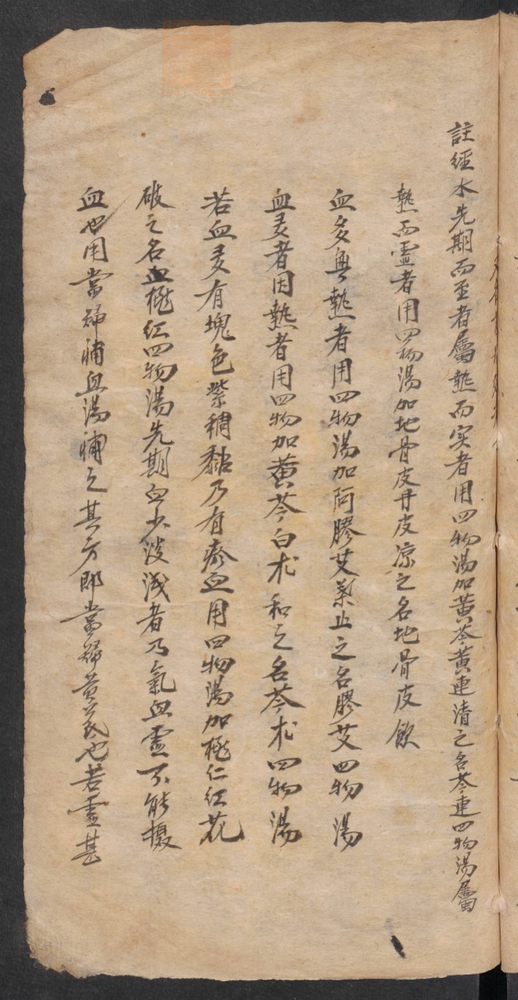 註經水先期而至者屬熱而实者用四物湯加黃芩黃連清之名芩連四物湯屬
熱而虛者用四物湯加地骨皮丹皮凉之名地骨皮飲
血多無熱者用四物湯加阿膠艾葉止之名膠艾四物湯
血多者因熱者用四物加黃芩白朮和之名芩朮四物湯
若血多有塊色紫稠黏乃有瘀血用四物湯加桃仁紅花
破之名血桃紅四物湯先期血少淺淡者乃氣血虛不能攝
血也用當歸補血湯補之其方即當歸黃芪也若虛甚